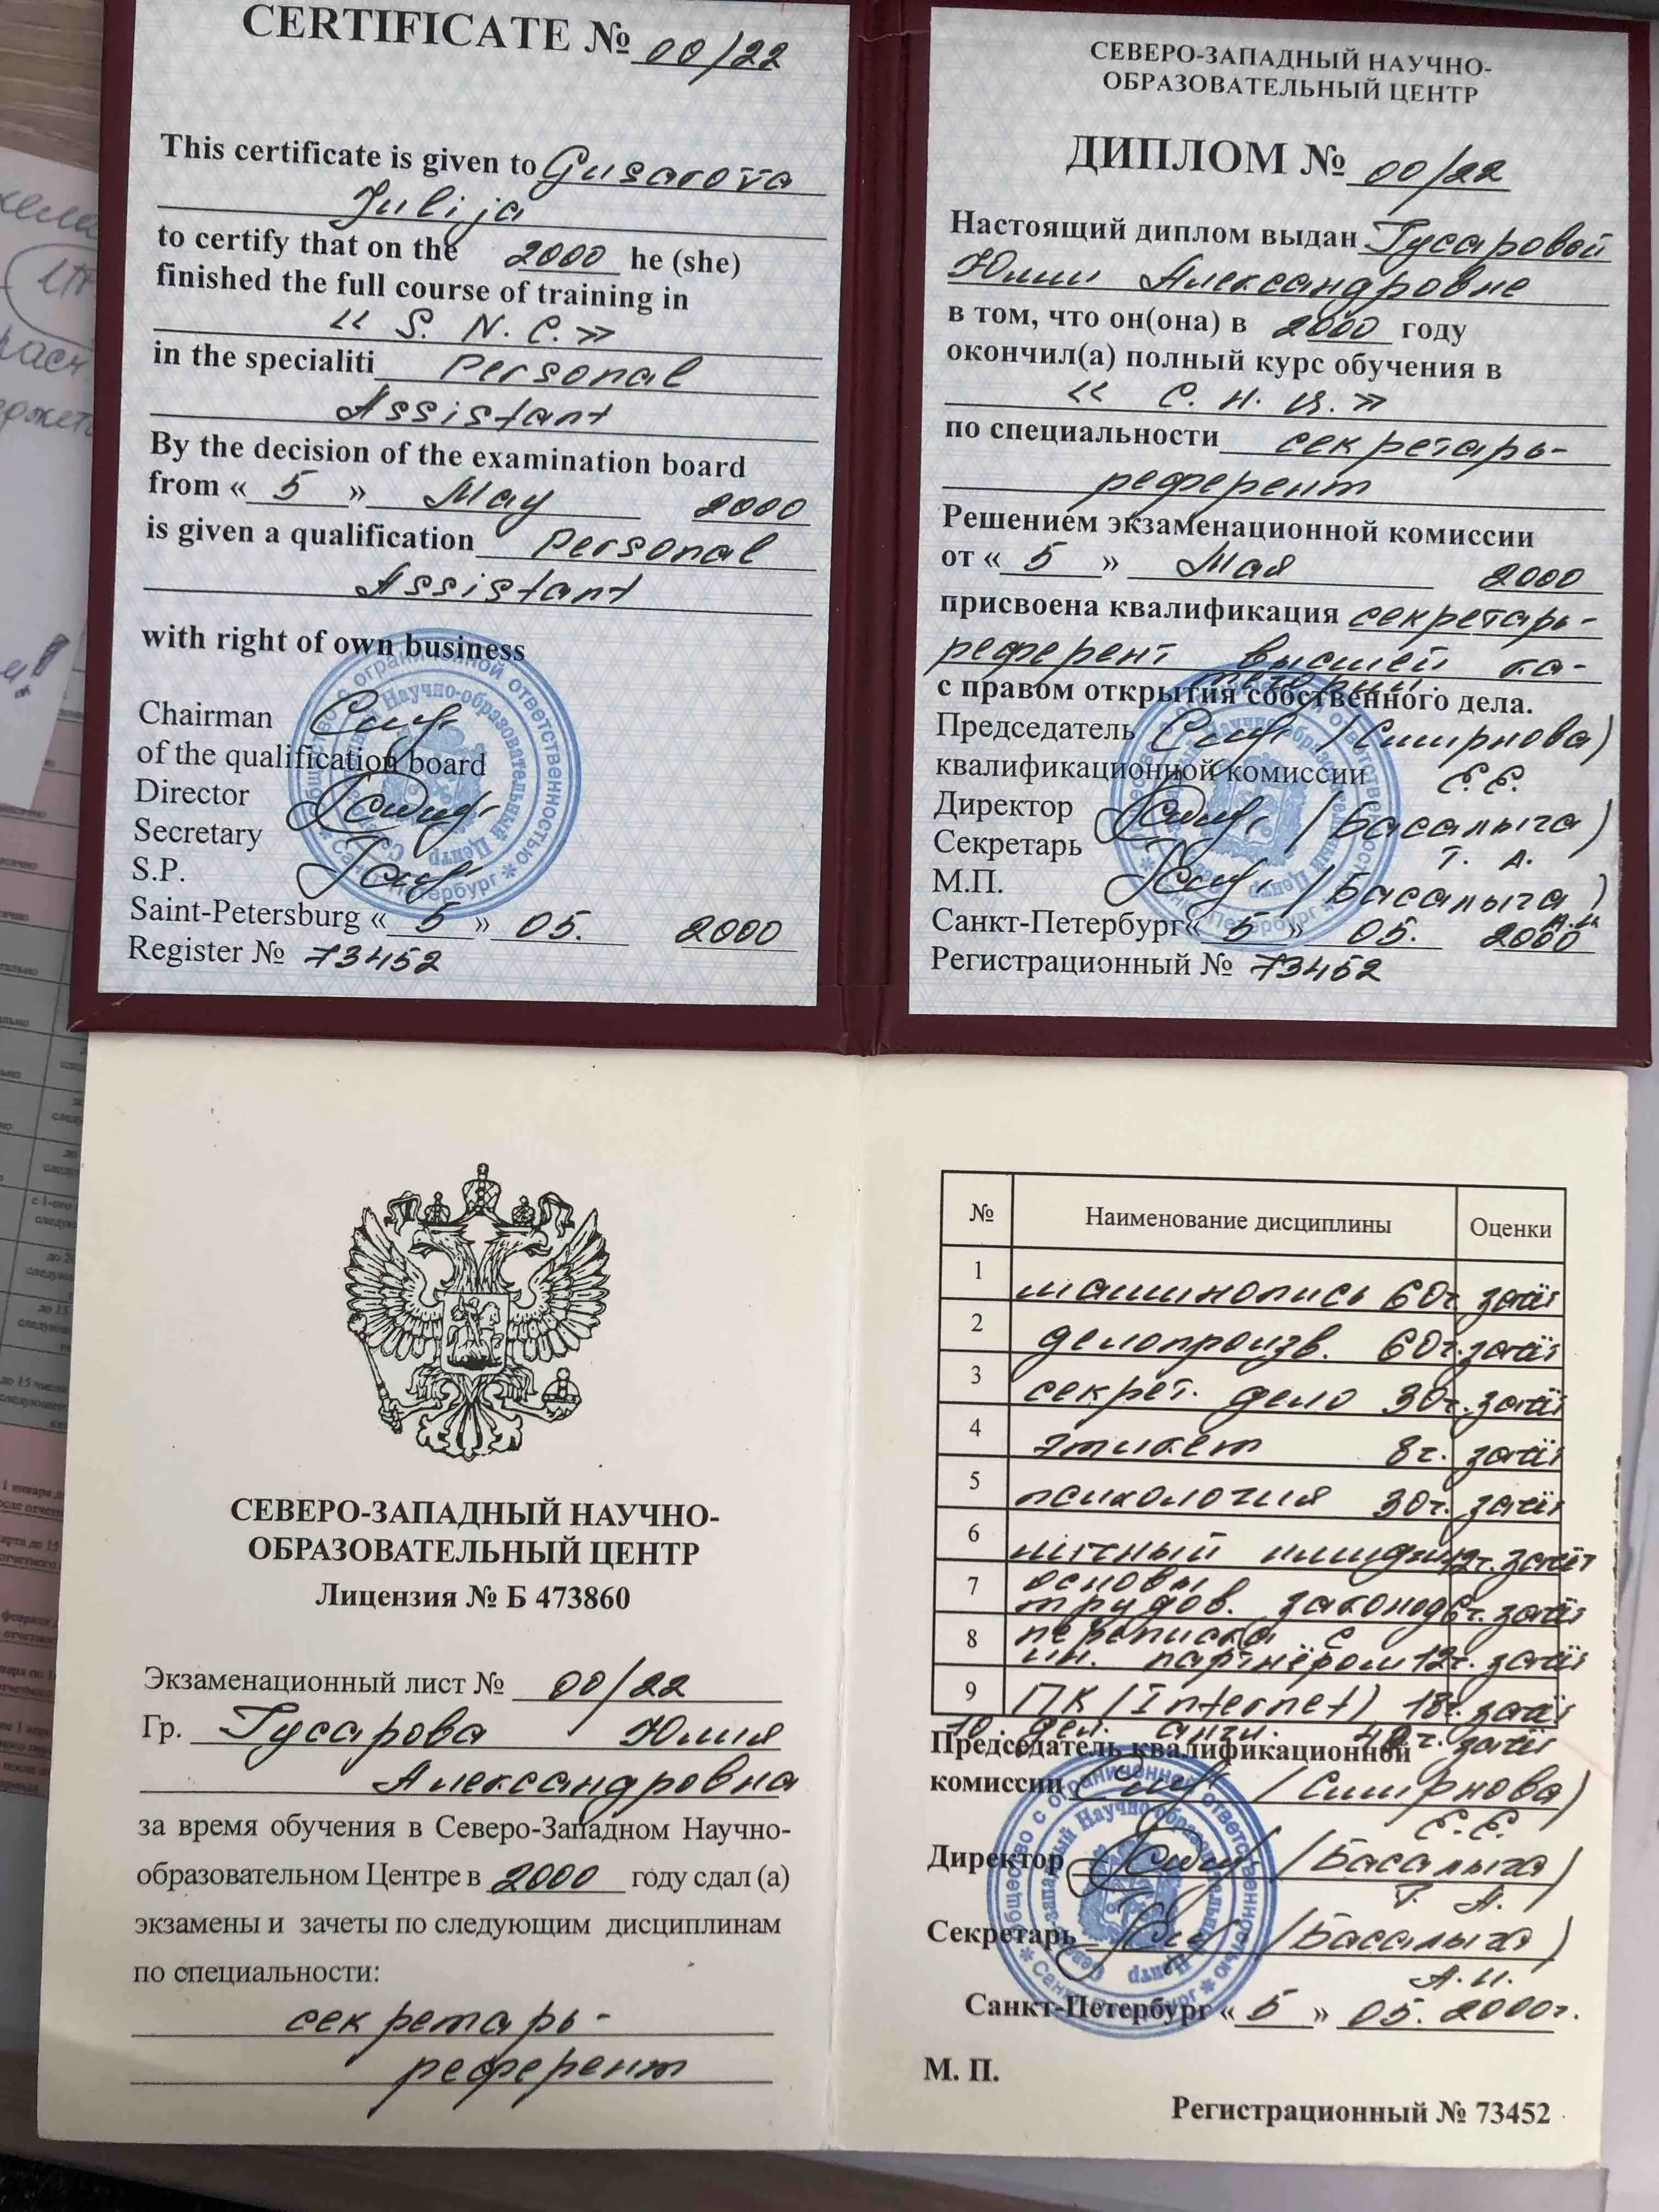 CERTIFICATE № 00/22
This certificate is given to Gusarova
Julija
to certify that on the 2000 he (she)
finished the full course of training in
« S. N. C. »
in the specialiti Personal
Assistant
By the decision of the examination board
from « 5 » May 2000
is given a qualification Personal
Assistant
with right of own business
Chairman
of the qualification board
Director
Secretary
S.P.
Saint-Petersburg « 5 » 05. 2000
Register № 73452
СЕВЕРО-ЗАПАДНЫЙ НАУЧНО-
ОБРАЗОВАТЕЛЬНЫЙ ЦЕНТР
ДИПЛОМ № 00/22
Настоящий диплом выдан Гусаровой
Юлии Александровне
в том, что он(она) в 2000 году
окончил(а) полный курс обучения в
« С. Н. Ц. »
по специальности секретарь-
референт
Решением экзаменационной комиссии
от « 5 » Мая 2000
присвоена квалификация секретарь-
референт высшей ка-
с правом открытия собственного дела.
Председатель /Смирнова)
квалификационной комиссии Е.Е.
Директор /Басалыга)
Секретарь Т. А.
М.П. /Басалыга)
А.И.
Санкт-Петербург « 5 » 05. 2000
Регистрационный № 73452
СЕВЕРО-ЗАПАДНЫЙ НАУЧНО-
ОБРАЗОВАТЕЛЬНЫЙ ЦЕНТР
Лицензия № Б 473860
Экзаменационный лист № 00/22
Гр. Гусарова Юлия
Александровна
за время обучения в Северо-Западном Научно-
образовательном Центре в 2000 году сдал (а)
экзамены и зачеты по следующим дисциплинам
по специальности:
секретарь-
референт
№ Наименование дисциплины Оценки
1 машинопись 60ч. зачёт
2 делопроизв. 60ч. зачёт
3 секрет. дело 30ч. зачёт
4 этикет 8ч. зачёт
5 психология 30ч. зачёт
6 личный имидж 12ч. зачёт
7 основы
трудов. законод. 6ч. зачёт
8 переписка с
ин. партнёром 12ч. зачёт
9 ПК (Internet) 18ч. зачёт
10. дел. англ. 40ч. зачёт
Председатель квалификационной
комиссии /Смирнова)
Е.Е.
Директор /Басалыга)
Т. А.
Секретарь /Басалыга)
А.И.
Санкт-Петербург « 5 » 05. 2000г.
М. П.
Регистрационный № 73452